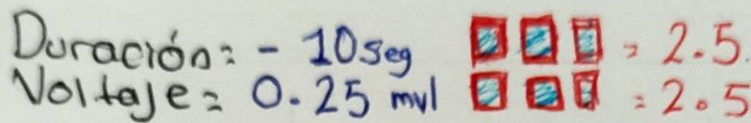 Duración: - 10seg = 2.5.
Voltaje = 0.25 mvl = 2.5